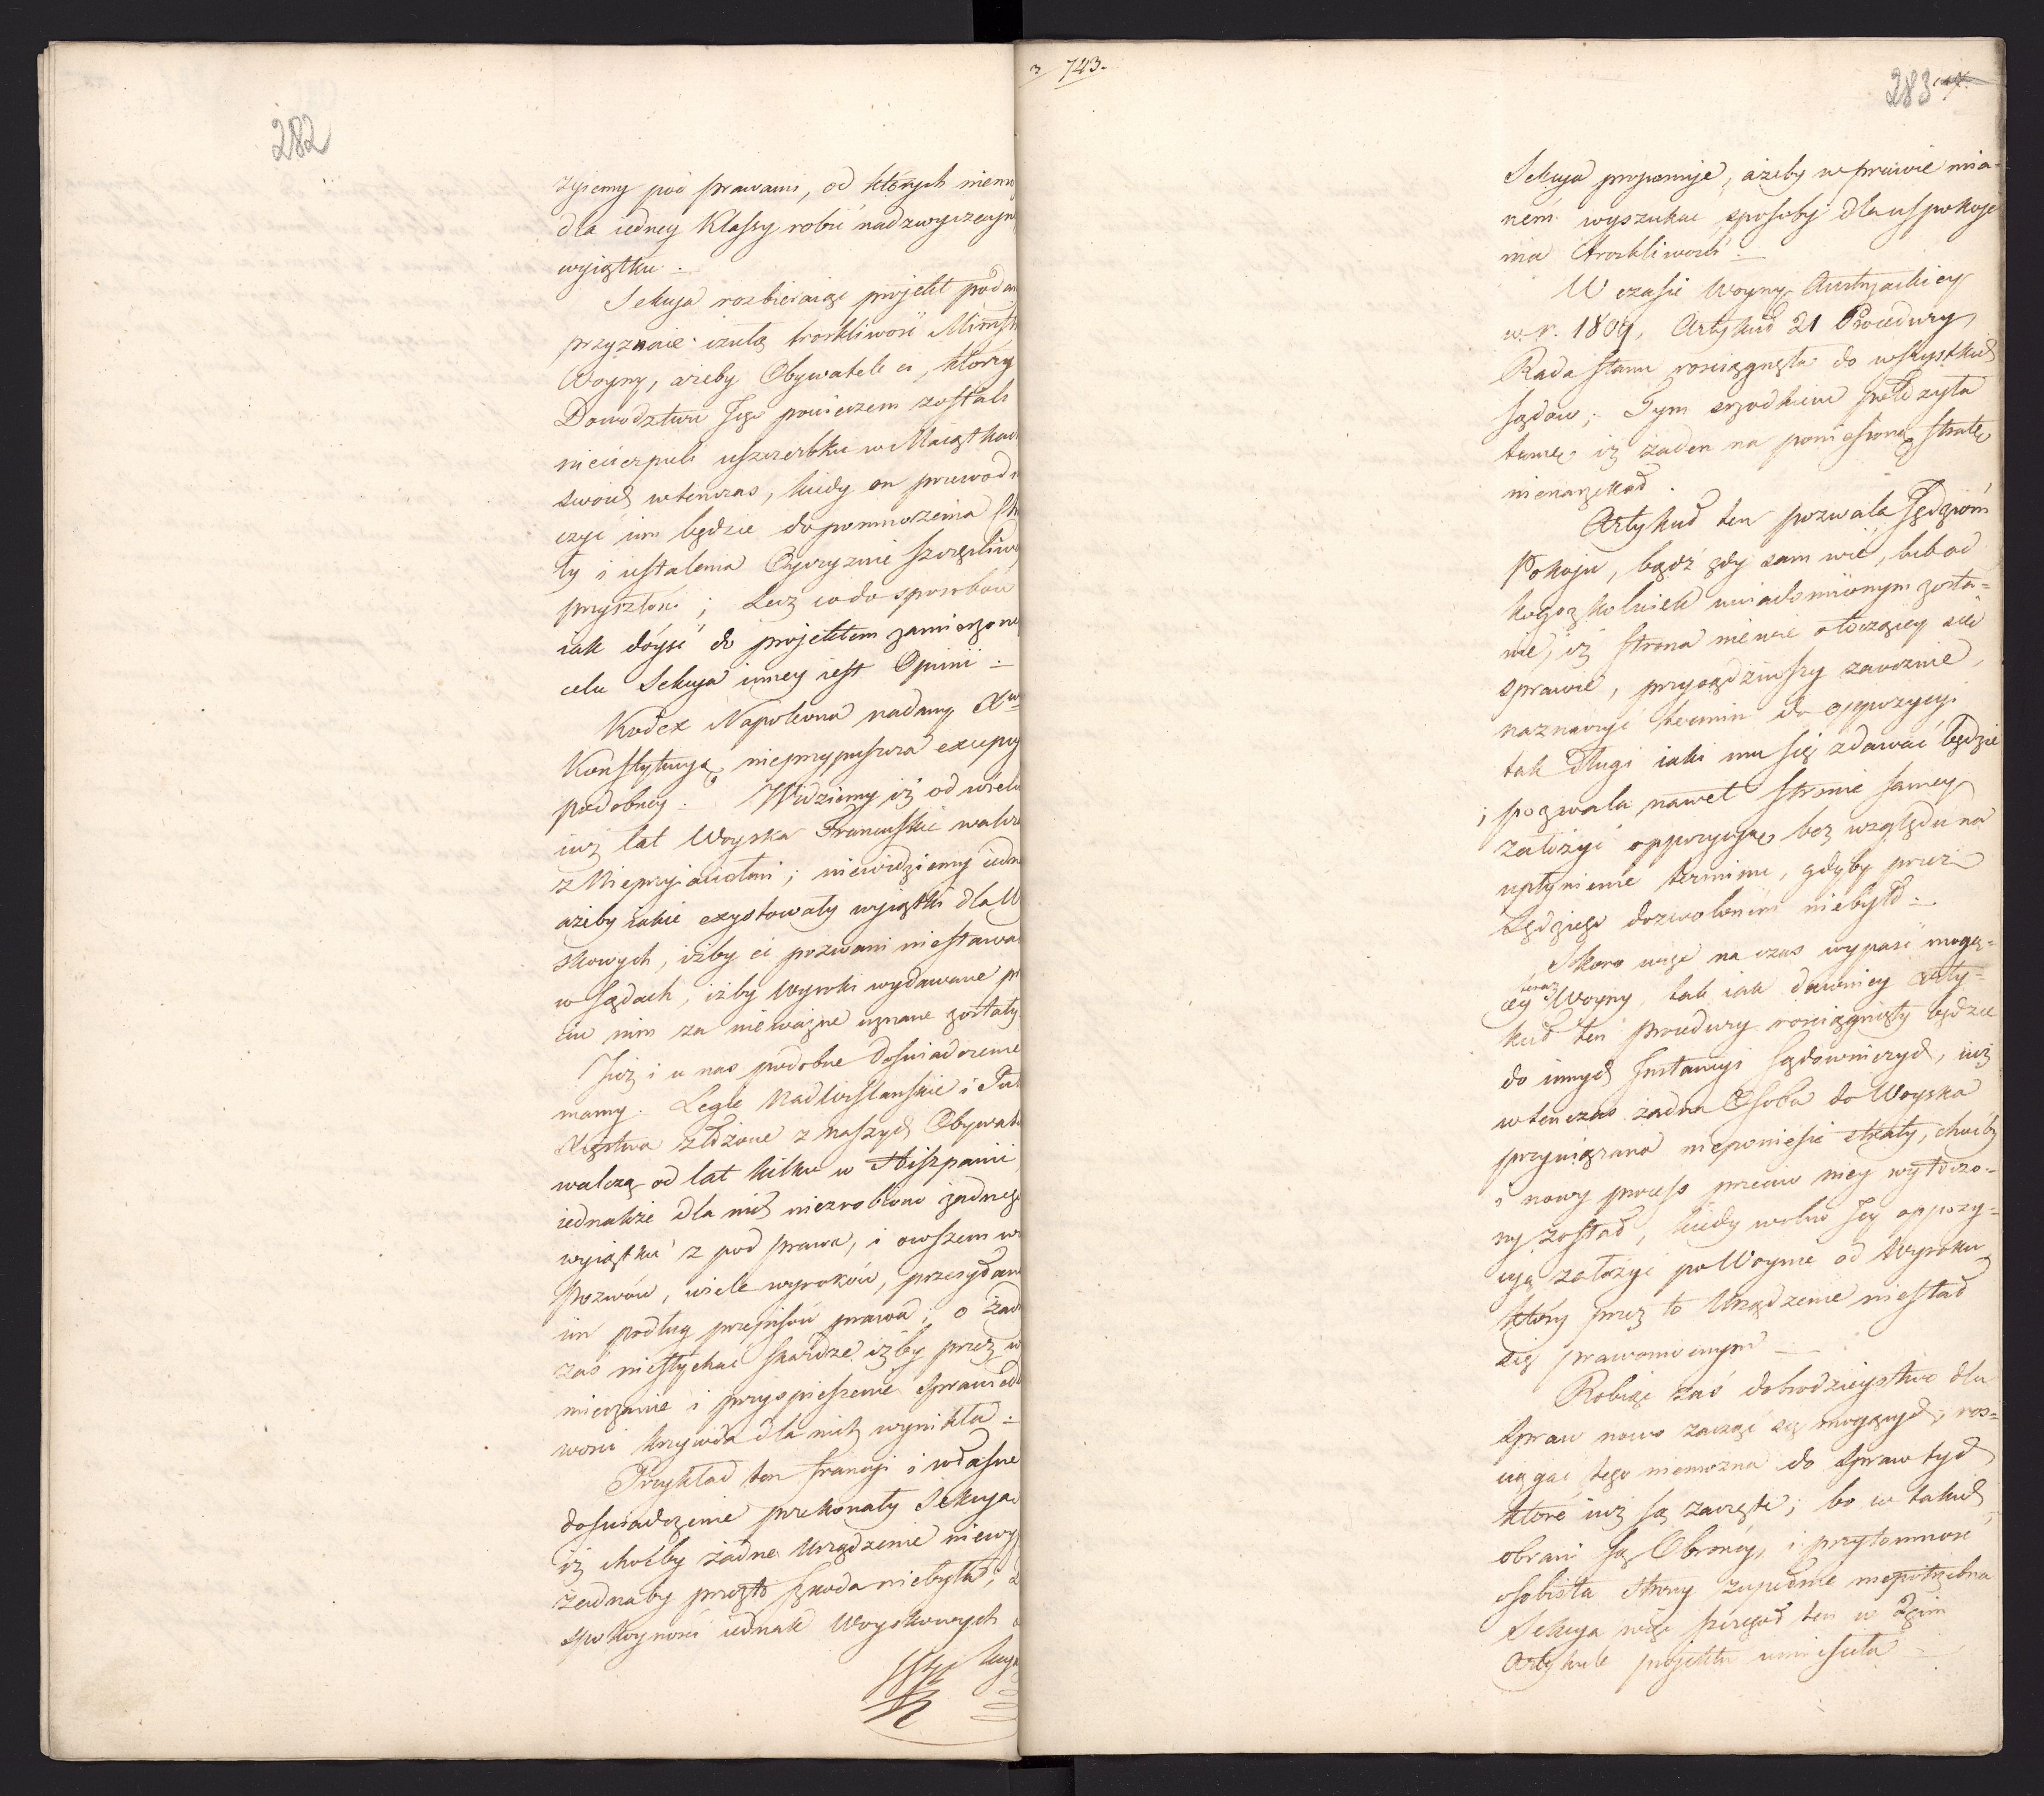 282
żyiemy pod prawami, od których niemo
dla iedney Klassy robić nadzwyczayn
wyiątku.
Sekcya rozbieraiąc projekt podan
przyznaie czułą troskliwość Ministr
Woyny, ażeby Obywatele ci, którzy
Dowodztwu Jego powierzeni zostali
niecierpieli uszczerbku w Maiątkach
swoich wtenczas, kiedy on przewodni
czyć im będzie do pomnożenia Chw
ły i ustalenia Oyczyznie szczęśliwey
przyszłości; Lecz co do sposobów
iak dóyść do projektem zamierzone
celu Sekcya inney iest Opinii.
Kodex Napoleona nadany Xwu
Konstytucyą, nieprzypuszcza excepcy
podobney. Widziemy iż od wielu
iuż lat Woyska Francuskie walczą
z Nieprzyiaciołmi; niewidziemy iedna
ażeby iakie exystowały wyiątki dla W
skowych, iżby ci pozwani niestawa
w Sądach, iżby Wyroki wydawane prze
ciw nim za nieważne uznane zostały
Już i u nas podobne doświadczenie
mamy. Legie Nadwiślańskie i Puł
Xięstwa złożone z naszych Obywate
walczą od lat kilku w Hiszpanii
iednakże dla nich niezrobiono żadnego
wyiątku z pod prawa, i owszem wi
Pozwów, wiele wyroków, przesyłano
im podług przepisów prawa; o żad
zaś niesłychać skardze iżby przez w
mierzanie i przyspieszenie sprawiedli
wości krzywda dla nich wynikła.
Przykład ten Francyi i własne
doświadczenie przekonały Sekcyą
iż choćby żadne Urządzenie niewy
żadnaby przezto szkoda niebyła;
spokoyność iednak Woyskowych
3 743.
283
Sekcya proponuje, ażeby w prawie mia-
ném wyszukać sposoby dla uspokoje
nia troskliwości.
W czasie Woyny Austryackiey
w r. 1809, Artykuł 21 Procedury
Rada Stanu rościągnęła do wszystkich
Sądow; Tym srzodkiem
tamę iż żaden na poniesioną stratę
nienarzekał.
Artykuł ten pozwala Sędziom
Pokoju, bądź gdy sam wie, lub od
kogoszkolwiek uwiadomionym zosta=
nie, iż strona niewie o toczącey się
sprawie, przysądziwszy zaocznie,
naznaczyć termin do oppozycyi
tak długi iaki mu się zdawać będzie
i pozwala nawet stronie samey
założyć oppozycyą bez względu na
upłynienie terminu, gdyby przez
Sędziego dozwolonem niebyło.
Skoro więc na czas wypaść mogą=
cey teraz Woyny, tak iak dawniey Arty=
kuł ten procedury rościągnięty będzie
do innych Instancyi Sądowniczych, iuż
wtenczas żadna Osoba do Woyska
przywiązana nieponiesie straty, choćby
i nowy process przeciw niey wytoczo=
ny został, kiedy wolno Jey oppozy=
cyą założyć po Woynie od Wyroku
który przez to Urządzenie niestał
się prawomocnym
Robiąc zaś dobrodzieystwo dla
Spraw nowo zacząć się mogących, roz=
ciągać tego niemożna do Spraw tych
które iuż są zaczęte; bo w takich
obrani są Obrońcy, i przytomność
osobista strony zupełnie niepotrzebna
Sekcya więc szczegoł ten w 2gim
Artykule projektu umieściła